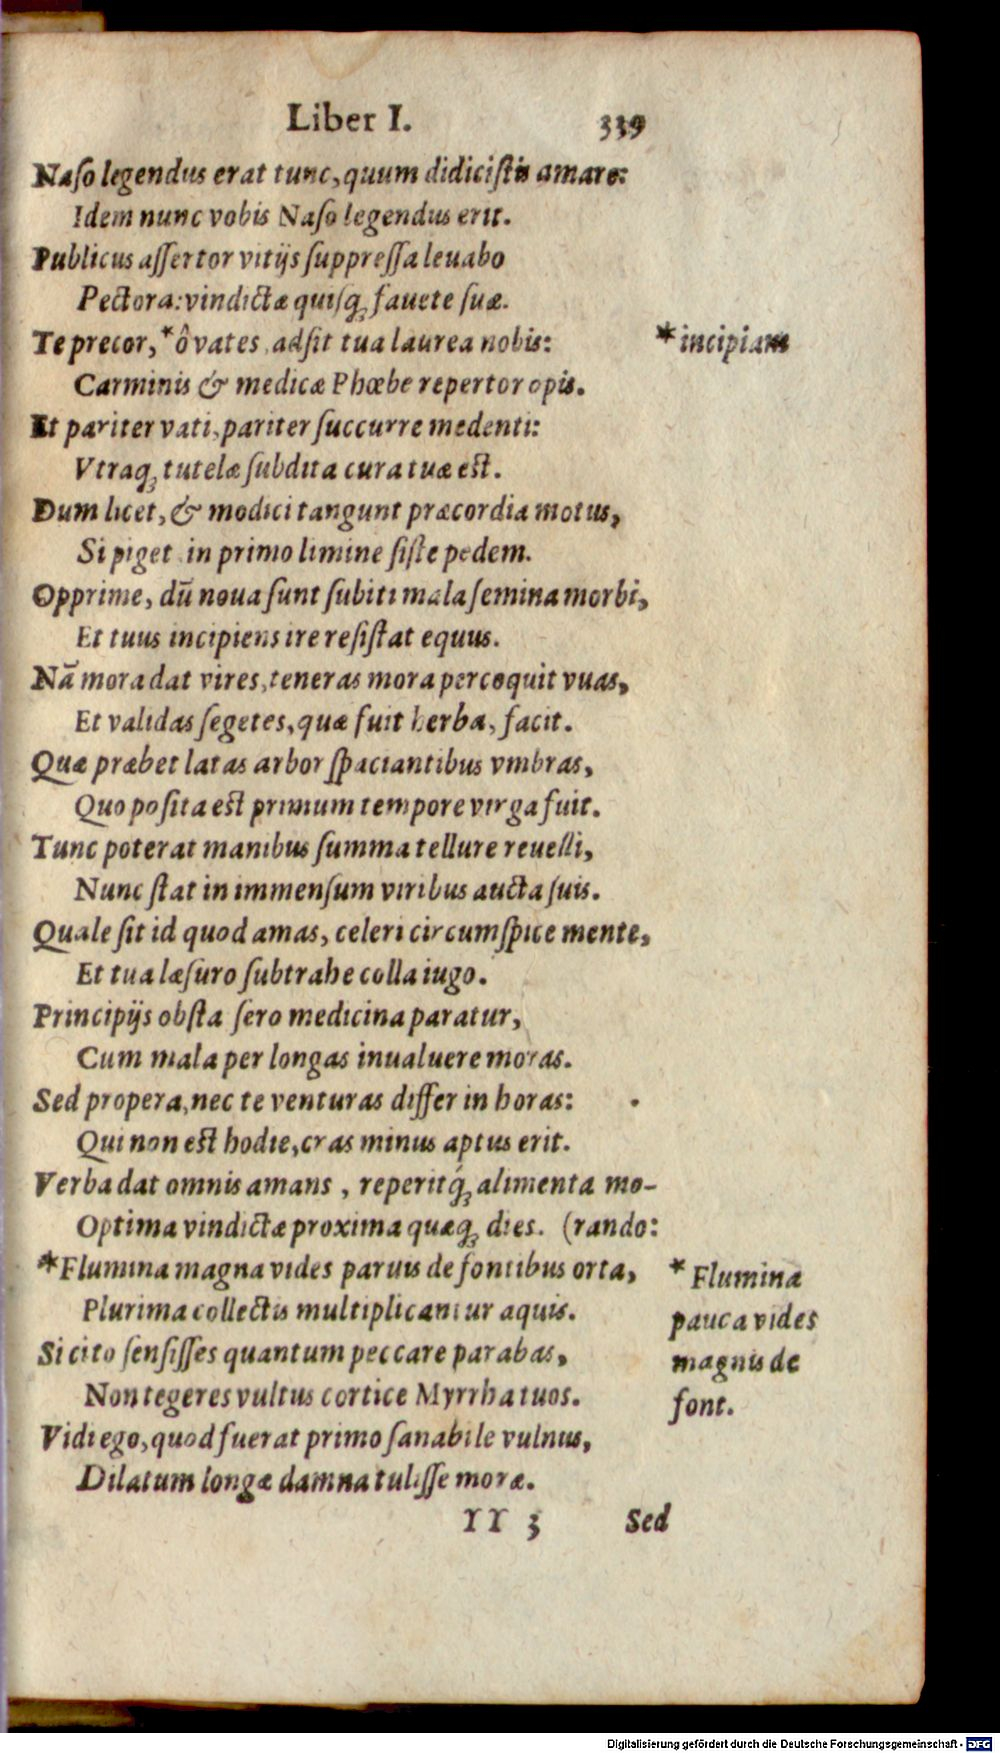 Liber I. 339
Naſo legendus erat tunc, quum didiciſtis amare:
Idem nunc vobis Naſo legendus erit.
Publicus aſſertor vitijs ſuppreſſa leuabo
Pectora: vindictæ quiſq; fauete ſuæ.
Te precor, *ô vates adſit tua laurea nobis:
*incipiam
Carminis & medicæ Phœbe repertor opis.
Et pariter vati, pariter ſuccurre medenti:
Vtraq; tutelæ ſubdita cura tuæ est.
Dum licet, & modici tangunt præcordia motus,
Si piget in primo limine ſiſte pedem.
Opprime, dū noua ſunt ſubiti mala ſemina morbi,
Et tuus incipiens ire reſiſtat equus.
Nā mora dat vires, teneras mora percoquit vuas,
Et validas ſegetes, quæ fuit herba, facit.
Quæ præbet latas arbor ſpaciantibus vmbras,
Quo poſita est primum tempore virga fuit.
Tunc poterat manibus ſumma tellure reuelli,
Nunc ſtat in immenſum viribus aucta ſuis.
Quale ſit id quod amas, celeri circumſpice mente,
Et tua læſuro ſubtrahe colla iugo.
Principijs obſta ſero medicina paratur,
Cum mala per longas inualuere moras.
Sed propera, nec te venturas differ in horas:
Qui non est hodie, cras minus aptus erit.
Verba dat omnis amans, reperitq́; alimenta mo-
Optima vindictæ proxima quæq; dies. (rando:
*Flumina magna vides paruis de fontibus orta,
Plurima collectis multiplicantur aquis.
* Flumina
pauca vides
magnis de
font.
Si cito ſenſiſſes quantum peccare parabas,
Non tegeres vultus cortice Myrrha tuos.
Vidi ego, quod fuerat primo ſanabile vulnus,
Dilatum longæ damna tuliſſe moræ.
YY 3 Sed
Digitalisierung gefördert durch die Deutsche Forschungsgemeinschaft - DFG